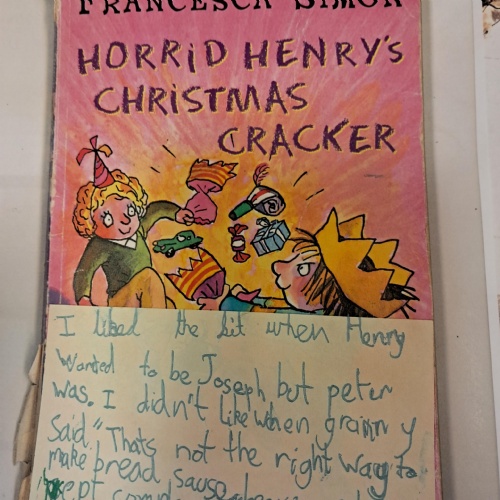 FRANCESCA SIMON
HORRID HENRY'S
CHRISTMAS
CRACKER
I liked the bit when Henry
wanted to be Joseph but peter
was. I didn't like when granny
said "Thats not the right way to
make bread sauce